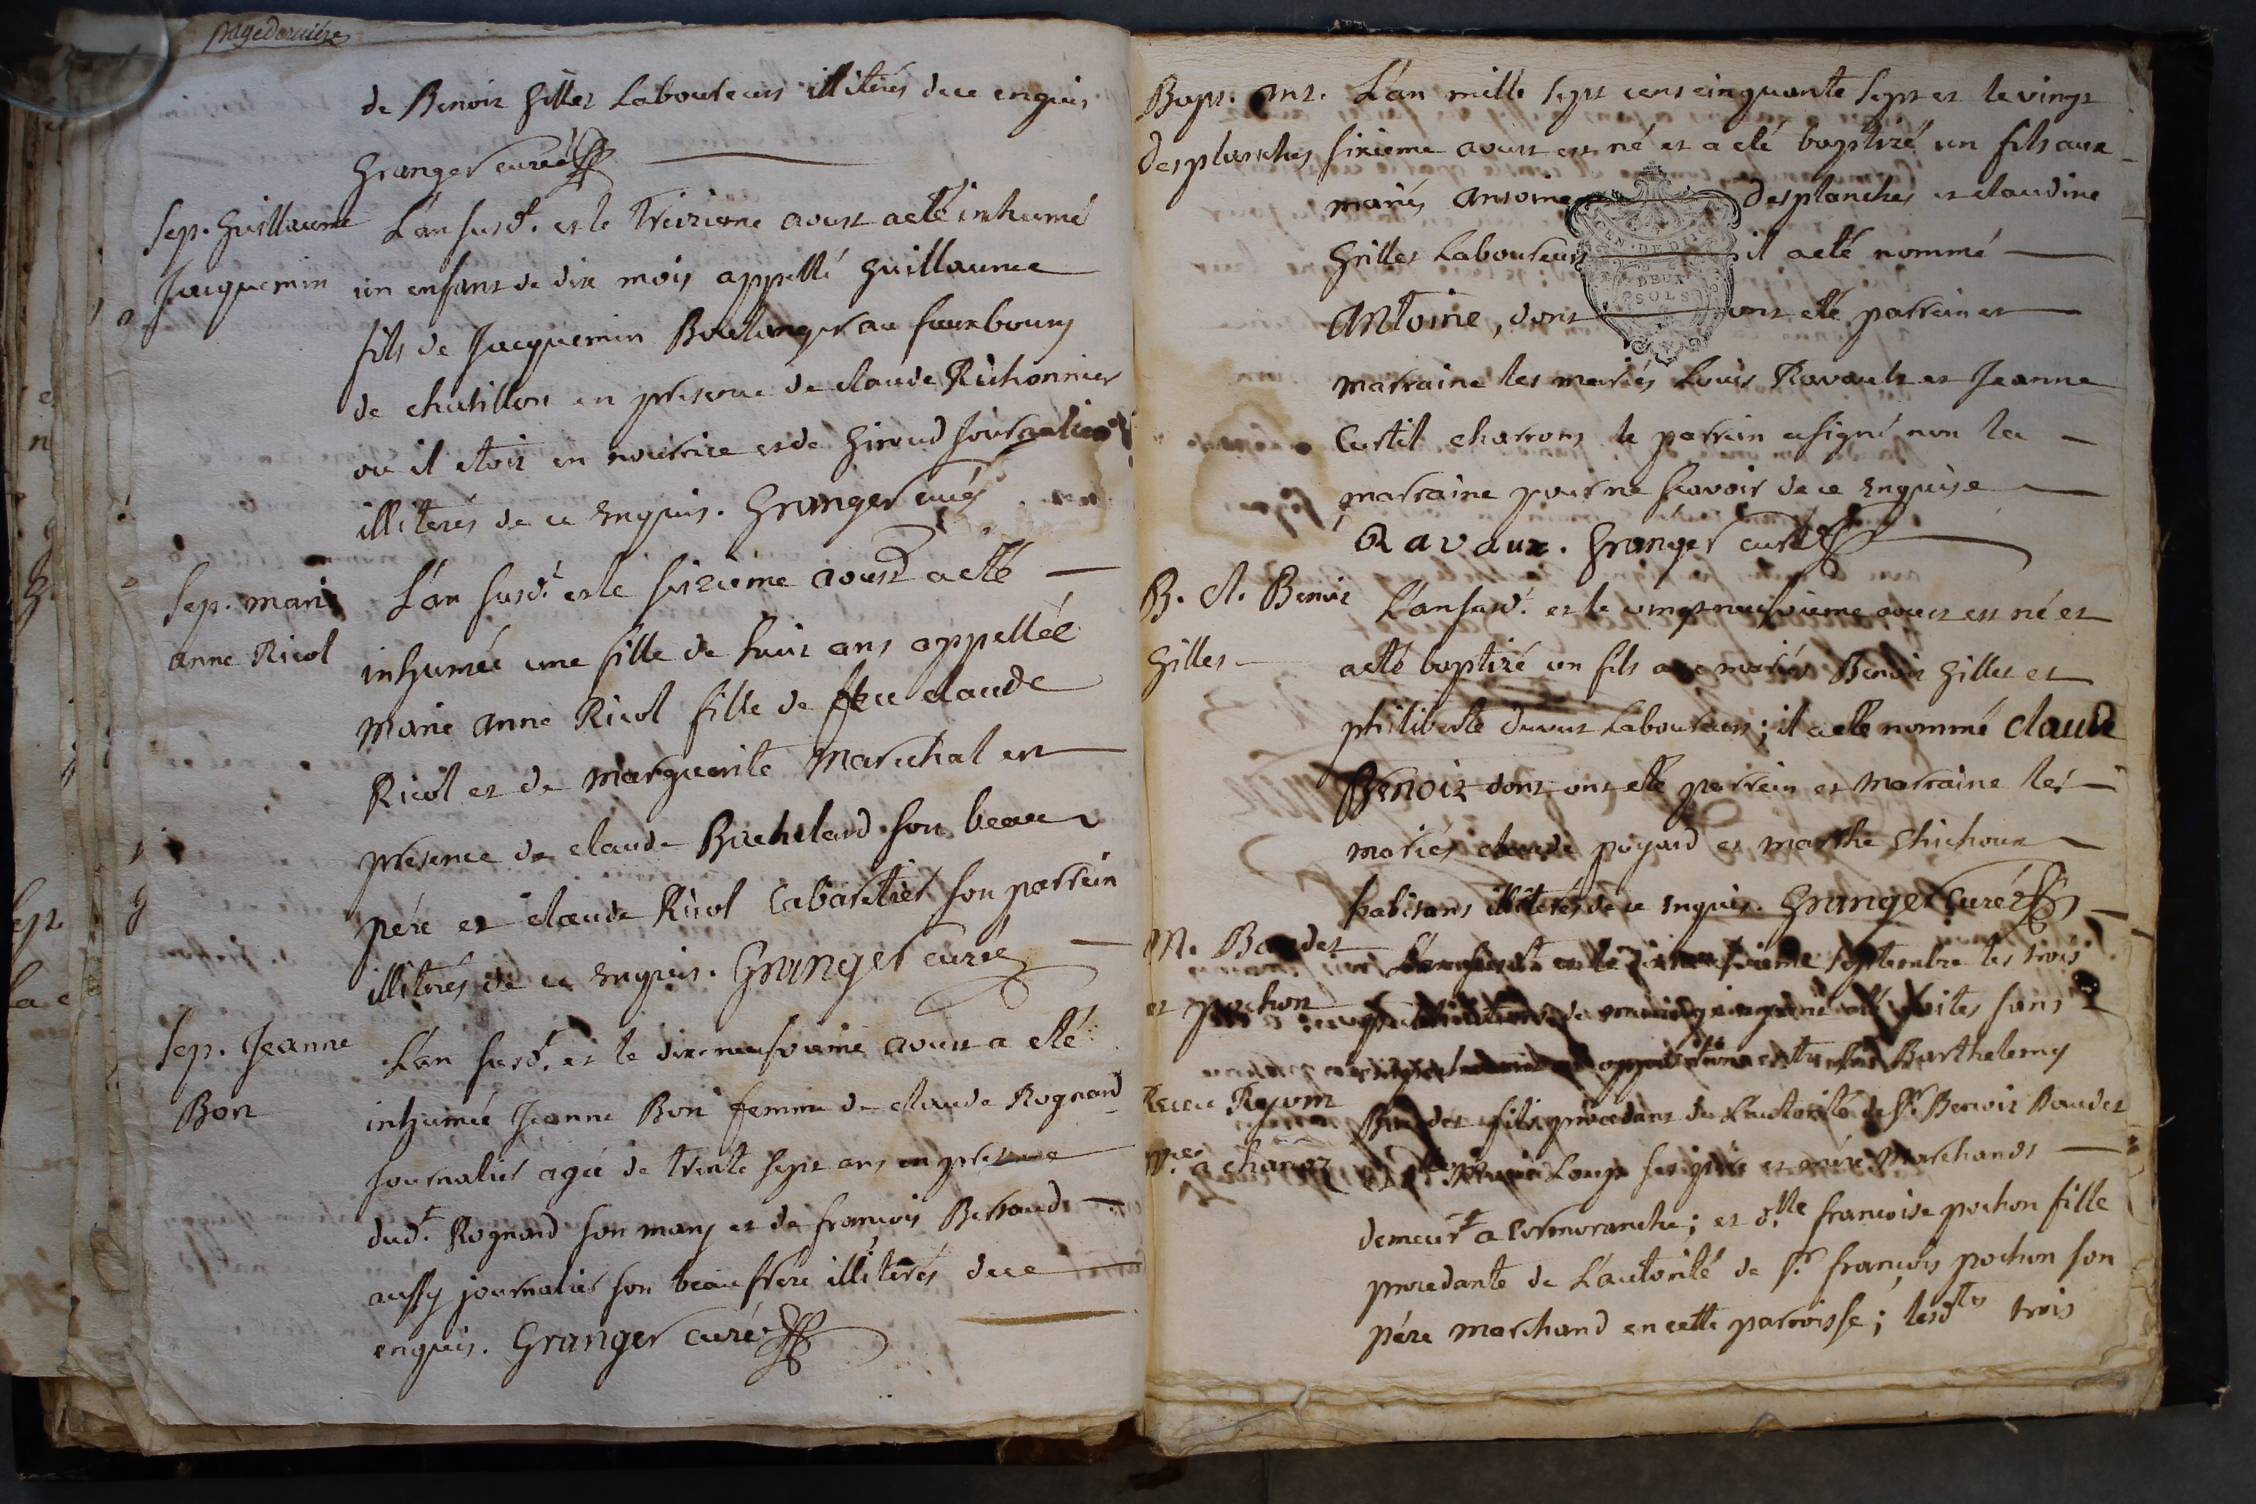 page derniére
de Benoit Gilles Laboureurs illiterés de ce enquis
Granger curé
Sep. Guillaume
Jacquemin
L'an susd.t et le treizieme aoust a eté inhumé
un enfant de dix mois appellé Guillaume
fils de Jacquemin Boulanger au fauxbourg
de chatillon en presence de claude Richonnier
ou il etoit en nourrice et de Giroud journalier
illiterés de ce enquis. Granger curé
Sep. marie
anne Ricol
L'an susd.t et le seizieme aoust a eté
inhumée une fille de huit ans appellée
marie anne Ricol fille de feu claude
Ricol et de marguerite Marechal en
presence de claude Bachelard son beau
pére et claude Ricol Cabaretier son parrein
illiterés de ce enquis. Granger curé
Sep. Jeanne
Bon
L'an susd.t et le dixneufvieme aoust a eté
inhumée Jeanne Bon femme de claude Rognard
journalier agée de trente sept ans en presence
dud.t Rognard son mary et de françois Berraud
aussy journalier son beau frere illiterés de ce
enquis. Granger curé
Bapt. ant.
desplanches
L'an mille sept cent cinquante sept et le vingt
sixieme aoust est né et a eté baptizé un fils aux
mariés antoine desplanches et claudine
Grilles Laboureurs il a eté nommé
Antoine, dont ont eté parrein et
marraine les mariés Louis Ravault et Jeanne
Curtil charrons le parrein a signé non la
marraine pour ne sçavoir de ce enquise
Ravaux. Granger curé
GEN. DE DIJON
DEUX
SOLS
B. cl. Benoit
Gilles
L'an susd.t et le vingt neufvieme aoust est né et
a eté baptizé un fils aux mariés Benoit Gilles et
philiberte Duvur Laboureurs; il a eté nommé claude
Benoit dont ont eté parrein et marraine les
mariés claude poyard et marthe Chichoux
habitans illiterés de ce enquis. Granger Curé
M. Baudet
et pochon
L'an susdt et le sixieme septembre les trois
de mariage ont eté faites sans
opposition entre Barthelemy
Baudet fils procedant de L'autorité de S.r Benoit Baudet
et Loup ses pére et mére Marchands
demeur.t a Cormoranche; et d.lle francoise pochon fille
procedante de L'autorité de S.r françois pochon son
pére marchand en cette parroisse; lesd.tes trois